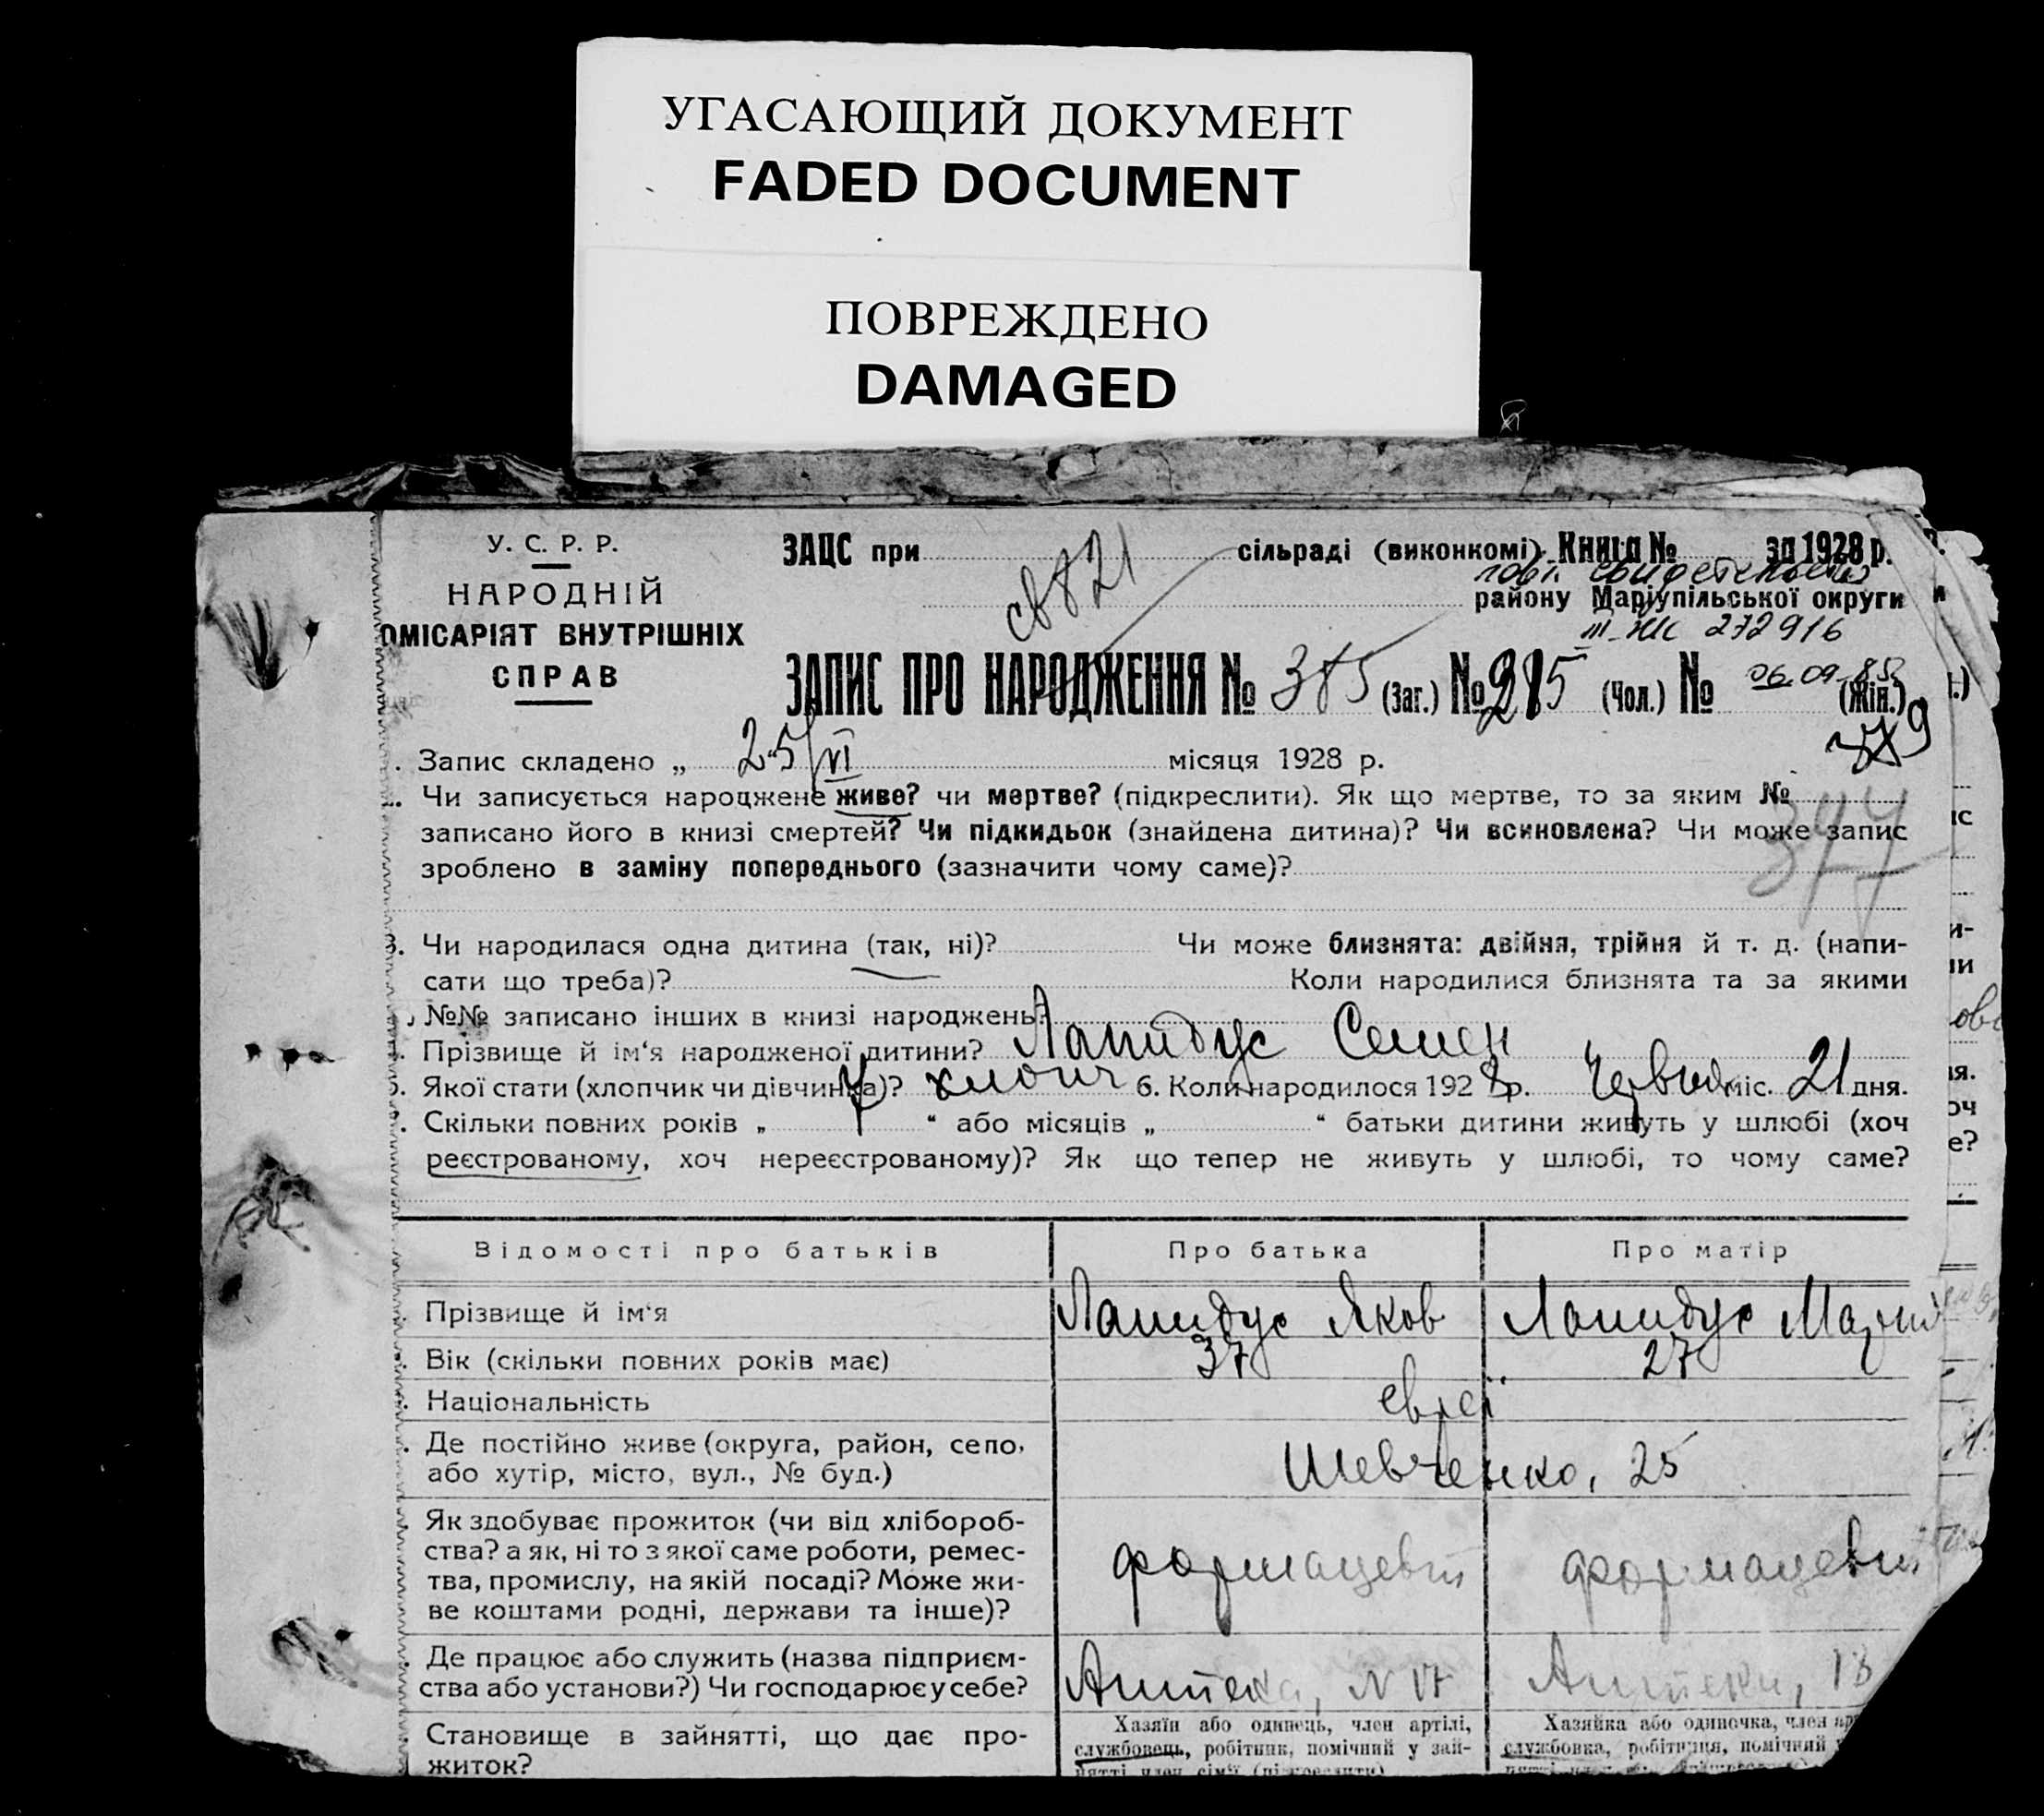 УГАСАЮЩИЙ ДОКУМЕНТ
FADED DOCUMENT
ПОВРЕЖДЕНО
DAMAGED
У. С. Р. Р.
НАРОДНІЙ
ОМІСАРІЯТ ВНУТРІШНІХ
СПРАВ
ЗАЦС при сільраді (виконкомі) Книга № за 1928 р.
св 821
району Маріупільської округи
272916
ЗАПИС ПРО НАРОДЖЕННЯ № 385 (Заг.) № (Чол.) № (Жін.)
06.09.85
Запис складено „ 25/VI місяця 1928 р.
Чи записується народжене живе? чи мертве? (підкреслити). Як що мертве, то за яким №
записано його в книзі смертей? Чи підкидьок (знайдена дитина)? Чи всиновлена? Чи може запис
зроблено в заміну попереднього (зазначити чому саме)?
377
3. Чи народилася одна дитина (так, ні)? Чи може близнята: двійня, трійня й т. д. (напи-
сати що треба)? Коли народилися близнята та за якими
№№ записано інших в книзі народжень?
Прізвище й ім‘я народженої дитини? Лапидус Семен
Якої стати (хлопчик чи дівчинка)? хлопч 6. Коли народилося 1928 р. Червня міс. 21 дня.
Скільки повних років „ 7 “ або місяців „ “ батьки дитини живуть у шлюбі (хоч
реєстрованому, хоч нереєстрованому)? Як що тепер не живуть у шлюбі, то чому саме?
Відомості про батьків Про батька Про матір
Прізвище й ім‘я Лапидус Яков Лапидус Мария
Вік (скільки повних років має) 37 27
Національність євреї
Де постійно живе (округа, район, село,
або хутір, місто, вул., № буд.) Шевченко, 25
Як здобуває прожиток (чи від хлібороб-
ства? а як, ні то з якої саме роботи, ремес-
тва, промислу, на якій посаді? Може жи-
ве коштами родні, держави та інше)?
формацевт формацевт
Де працює або служить (назва підприєм-
ства або установи?) Чи господарює у себе?
Аптека, N
Становище в зайнятті, що дає про-
житок?
Хазяїн або одинець, член артілі,
службовець, робітник, помічний у зай-
нятті член сім‘ї (підкреслити)
Хазяйка або одиночка, член ар
службовка, робітниця, помічний у